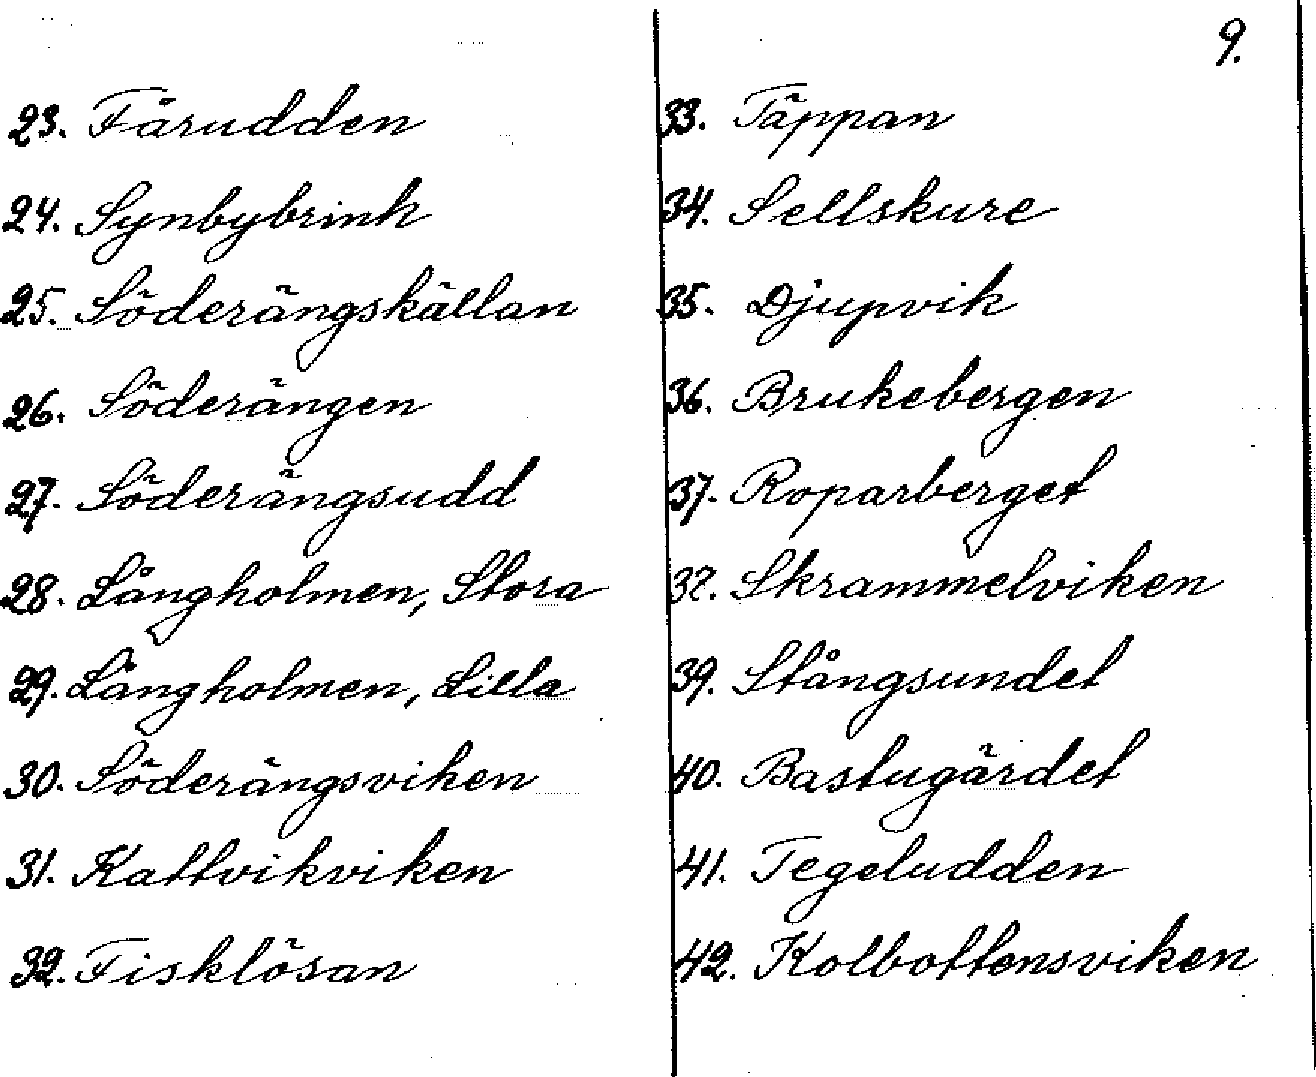 9.
23. Fårudden
24. Synbybrink
25. Söderängskällan
26. Söderängen
27. Söderängsudd
28. Långholmen, Stora
29. Långholmen, Lilla
30. Söderängsviken
31. Kattvikviken
32. Fisklösan
33. Täppan
34. Sellskure
35. Djupvik
36. Brukebergen
37. Roparberget
38. Skrammelviken
39. Stångsundet
40. Bastugärdet
41. Tegeludden
42. Kolbottensviken